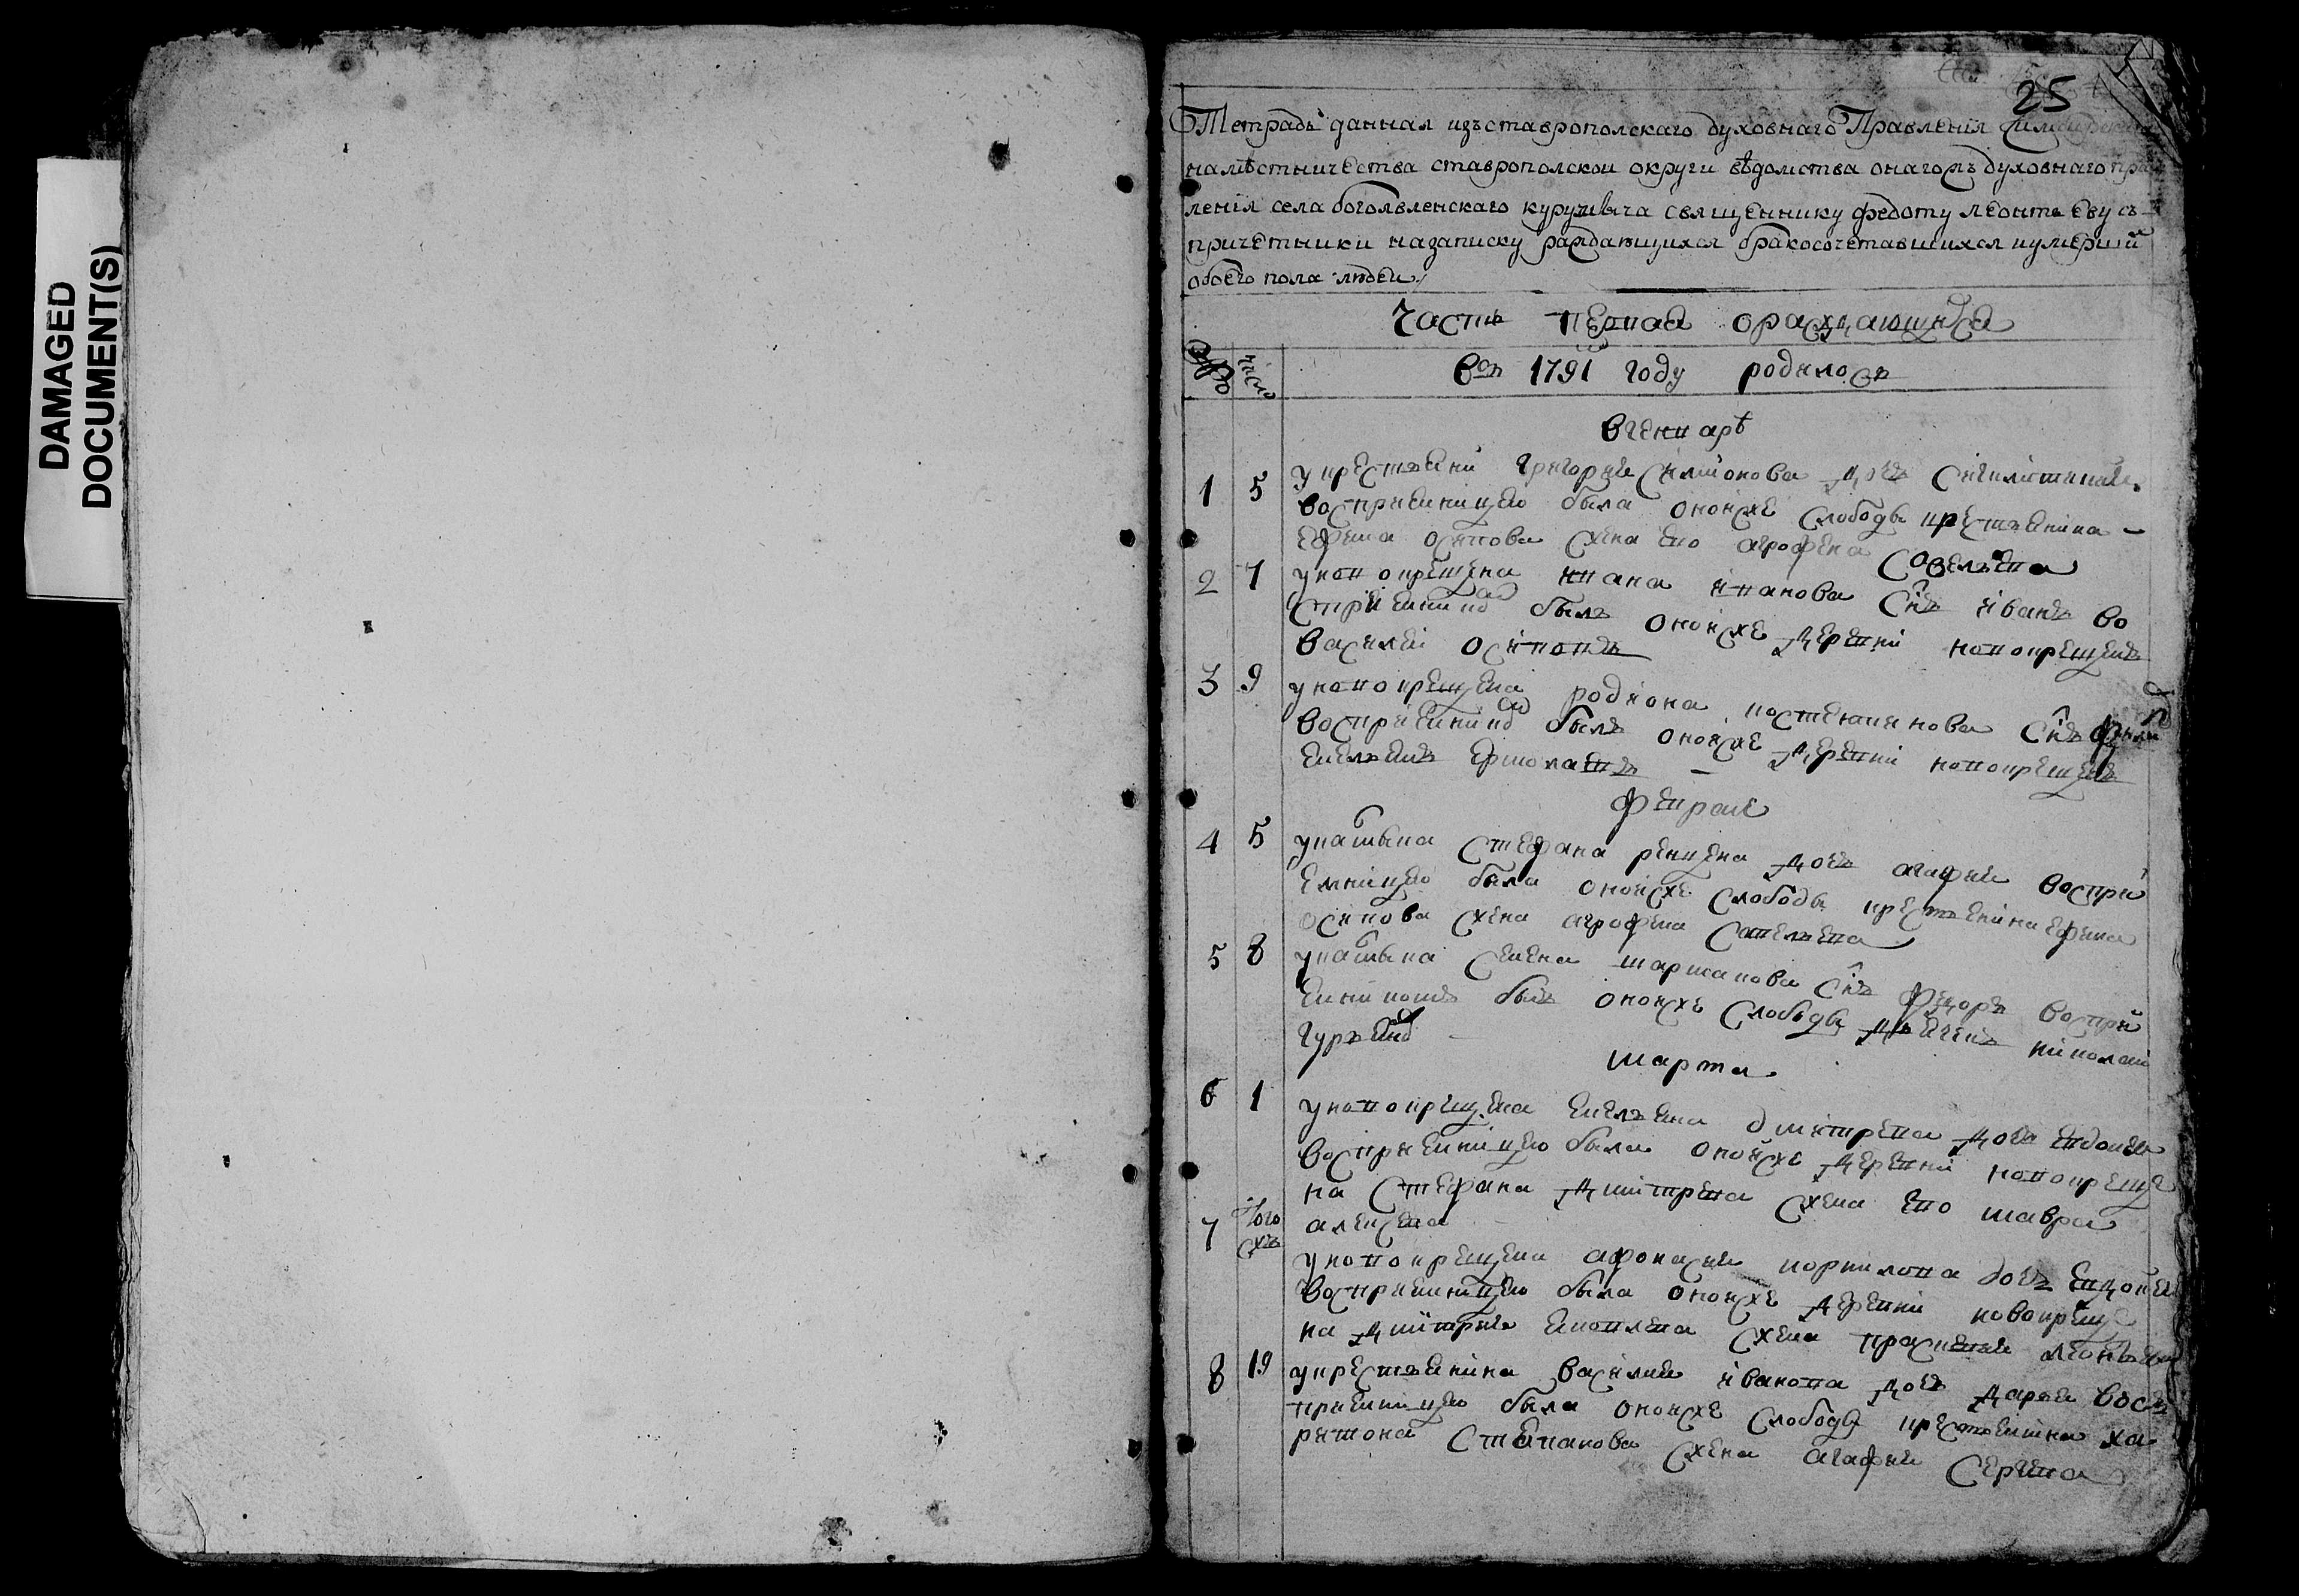 DAMAGED
DOCUMENT(S)
25
Тетрадь данная изъ ставрополскаго духовнаго Правленія
намѣстничества ставрополской округи вѣдомства онагожъ духовнаго прав
ленія села богоявленскаго священнику федоту леонтьеву съ
причетники на записку раждающихся бракосочетавшихся и умершй
обоего пола людей
Часть первая о раждающихся
число
Въ 1791 году родилось
В генварѣ
1 5 у крестьянина Григорья Симионова дочь
восприемницею была оной же слободы крестьянина
ефима осипова жена ево агрофена Савельева
2 7 у новокрещена ивана иванова Снъ иванъ во
сприемникъ былъ оной же деревни новокрещенъ
василей осиповъ
3 9 у новокрещена родиона костентинова Снъ
восприемникъ былъ оной же деревни новокрещенъ
емельянъ ермолаевъ
феврале
4 5 Стефана дочь агафия воспри
емницею была оной же слободы крестьянина ефима
осипова жена агрофена Савельева
5 8 Семена Снъ федоръ воспри
емникомъ былъ оной же слободы николай
Гурьевъ
марта
6 1 у новокрещена емельяна дмитрева дочь евдокея
восприемницею была оной же деревни новокреще
на Стефана дмитрева жена ево мавра
алексева
7 того жъ у новокрещена афонасия дочь евдокея
восприемницею была оной же деревни новокреще
на дмитрия жена
8 19 у крестьянина василия иванова дочь дарья вос
приемницею была оной же слободы крестьянина ха
ритона Степанова жена агафия